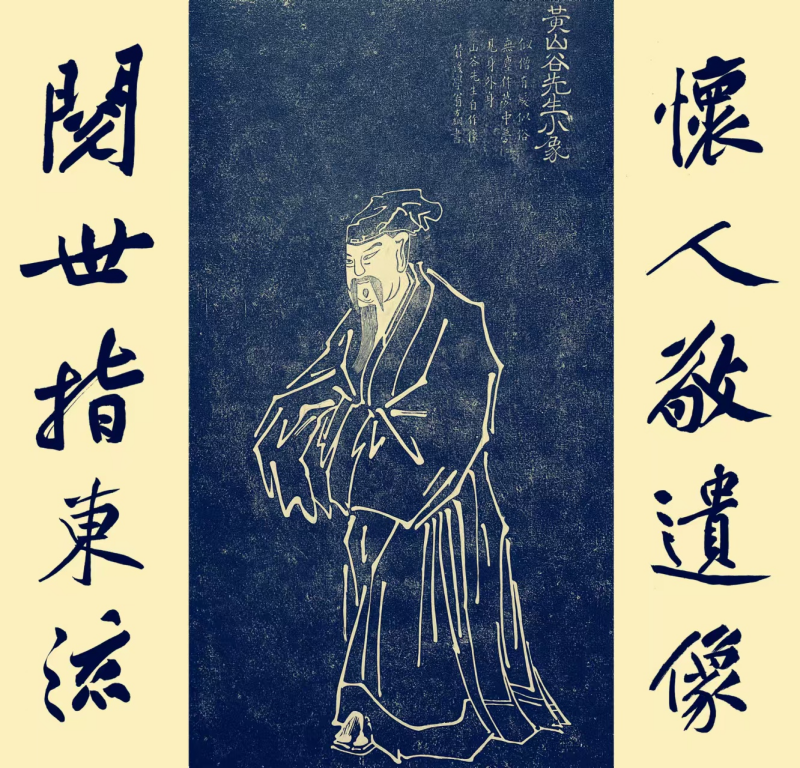 懷人敬遺像
黃山谷先生小象
似僧有髮似俗
無塵作夢中夢
見身外身
山谷先生自作像
贊後學翁方綱書
閱世指東流